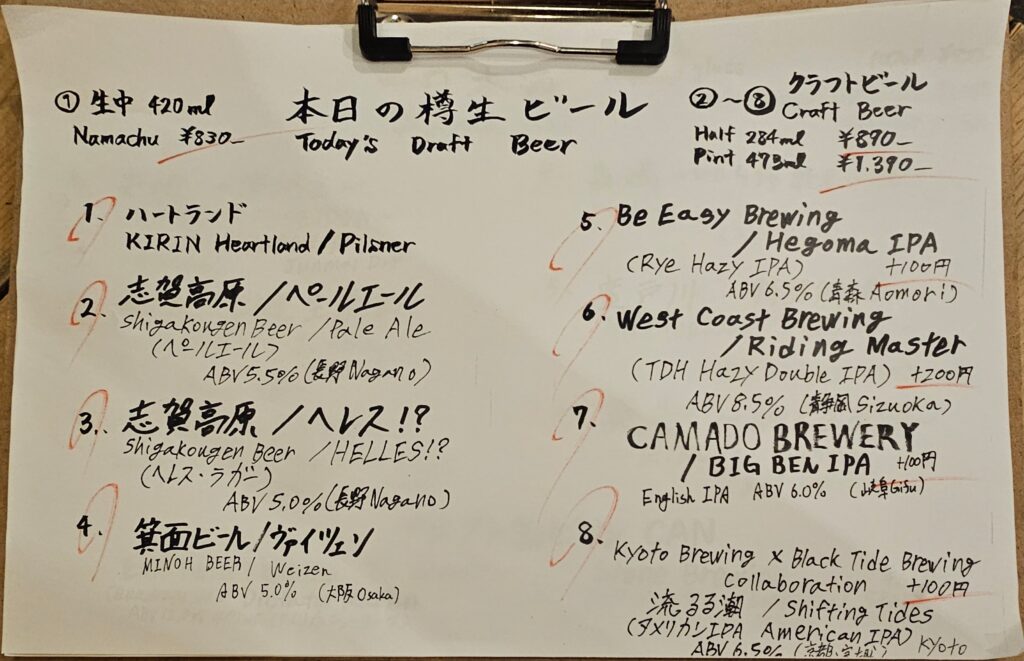 ① 生中 420ml
Namachu ¥830-
本日の樽生ビール
Today's Draft Beer
②~⑧ クラフトビール
Craft Beer
Half 284ml ¥890-
Pint 473ml ¥1,390-
1. ハートランド
KIRIN Heartland / Pilsner
2. 志賀高原 / ペールエール
Shigakougen Beer / Pale Ale
(ペールエール)
ABV 5.5% (長野 Nagano)
3. 志賀高原 / ヘレス!?
Shigakougen Beer / HELLES!?
(ヘレス・ラガー)
ABV 5.0% (長野 Nagano)
4. 箕面ビール / ヴァイツェン
MINOH BEER / Weizen
ABV 5.0% (大阪 Osaka)
5. Be Easy Brewing
/ Hegoma IPA
(Rye Hazy IPA) +100円
ABV 6.5% (青森 Aomori)
6. West Coast Brewing
/ Riding Master
(TDH Hazy Double IPA) +200円
ABV 8.5% (静岡 Sizuoka)
7. CAMADO BREWERY
/ BIG BEN IPA +100円
English IPA ABV 6.0% (岐阜 Gifu)
8. Kyoto Brewing × Black Tide Brewing
Collaboration +100円
流るる潮 / Shifting Tides
(アメリカンIPA American IPA)
ABV 6.5% (京都・宮城) Kyoto